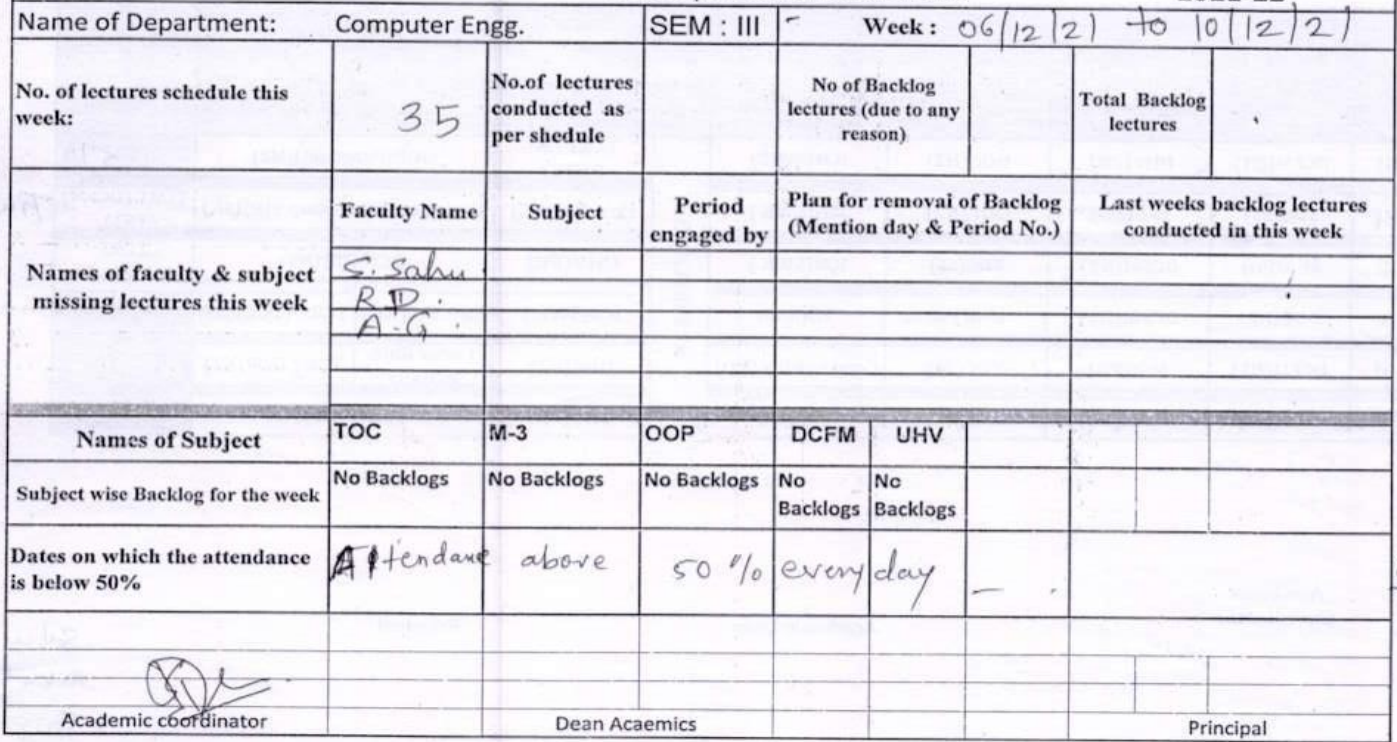 Name of Department: Computer Engg. SEM : III - Week : 06/12/21 to 10/12/21
No. of lectures schedule this week: 35 No.of lectures conducted as per shedule No of Backlog lectures (due to any reason) Total Backlog lectures
Faculty Name Subject Period engaged by Plan for removal of Backlog (Mention day & Period No.) Last weeks backlog lectures conducted in this week
Names of faculty & subject missing lectures this week
S. Sahu.
R.D.
A-G.
Names of Subject TOC M-3 OOP DCFM UHV
Subject wise Backlog for the week No Backlogs No Backlogs No Backlogs No Backlogs No Backlogs
Dates on which the attendance is below 50% Attendane above 50 % every day
Academic coordinator Dean Acaemics Principal